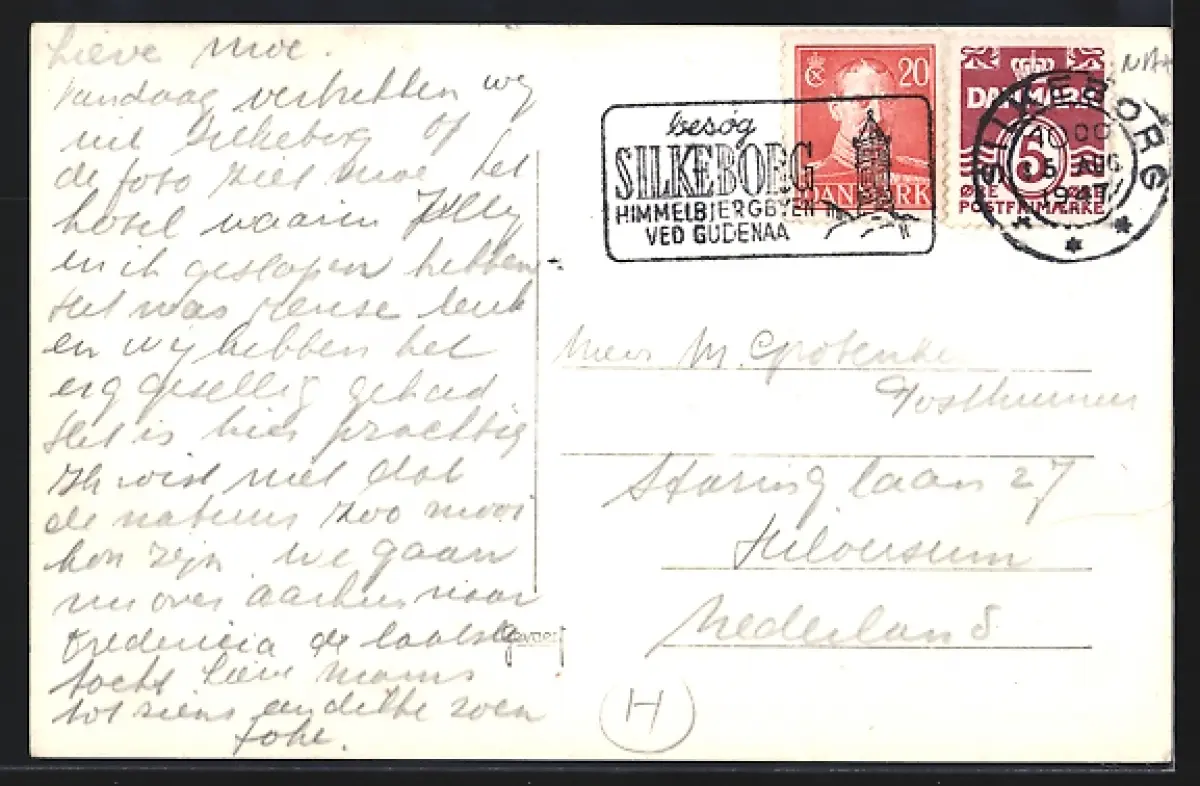 Lieve moe.
Vandaag vertrekken wy
uit Silkeborg Op
de foto ziet moe het
hotel waarin Jelly
en ik geslapen hebben.
Het was reuse leuk
en wij hebben het
erg gesellig gehad
Het is hier prachtig
Ik wist niet dat
de natuur zoo mooi
kon zijn we gaan
nu over Aarhus naar
Fredericia de laatste
tocht Lieve moms
tot ziens en dikke zoen
Joke.
Gevaert
20
DANMARK
DANMARK
5
ØRE ØRE
POSTFRIMÆRKE
besøg
SILKEBORG
HIMMELBJERGBYEN
VED GUDENAA
SILKEBORG
1947
Mevr M.
Posthumus
Staringlaan 27
Hilversum
Nederland
H